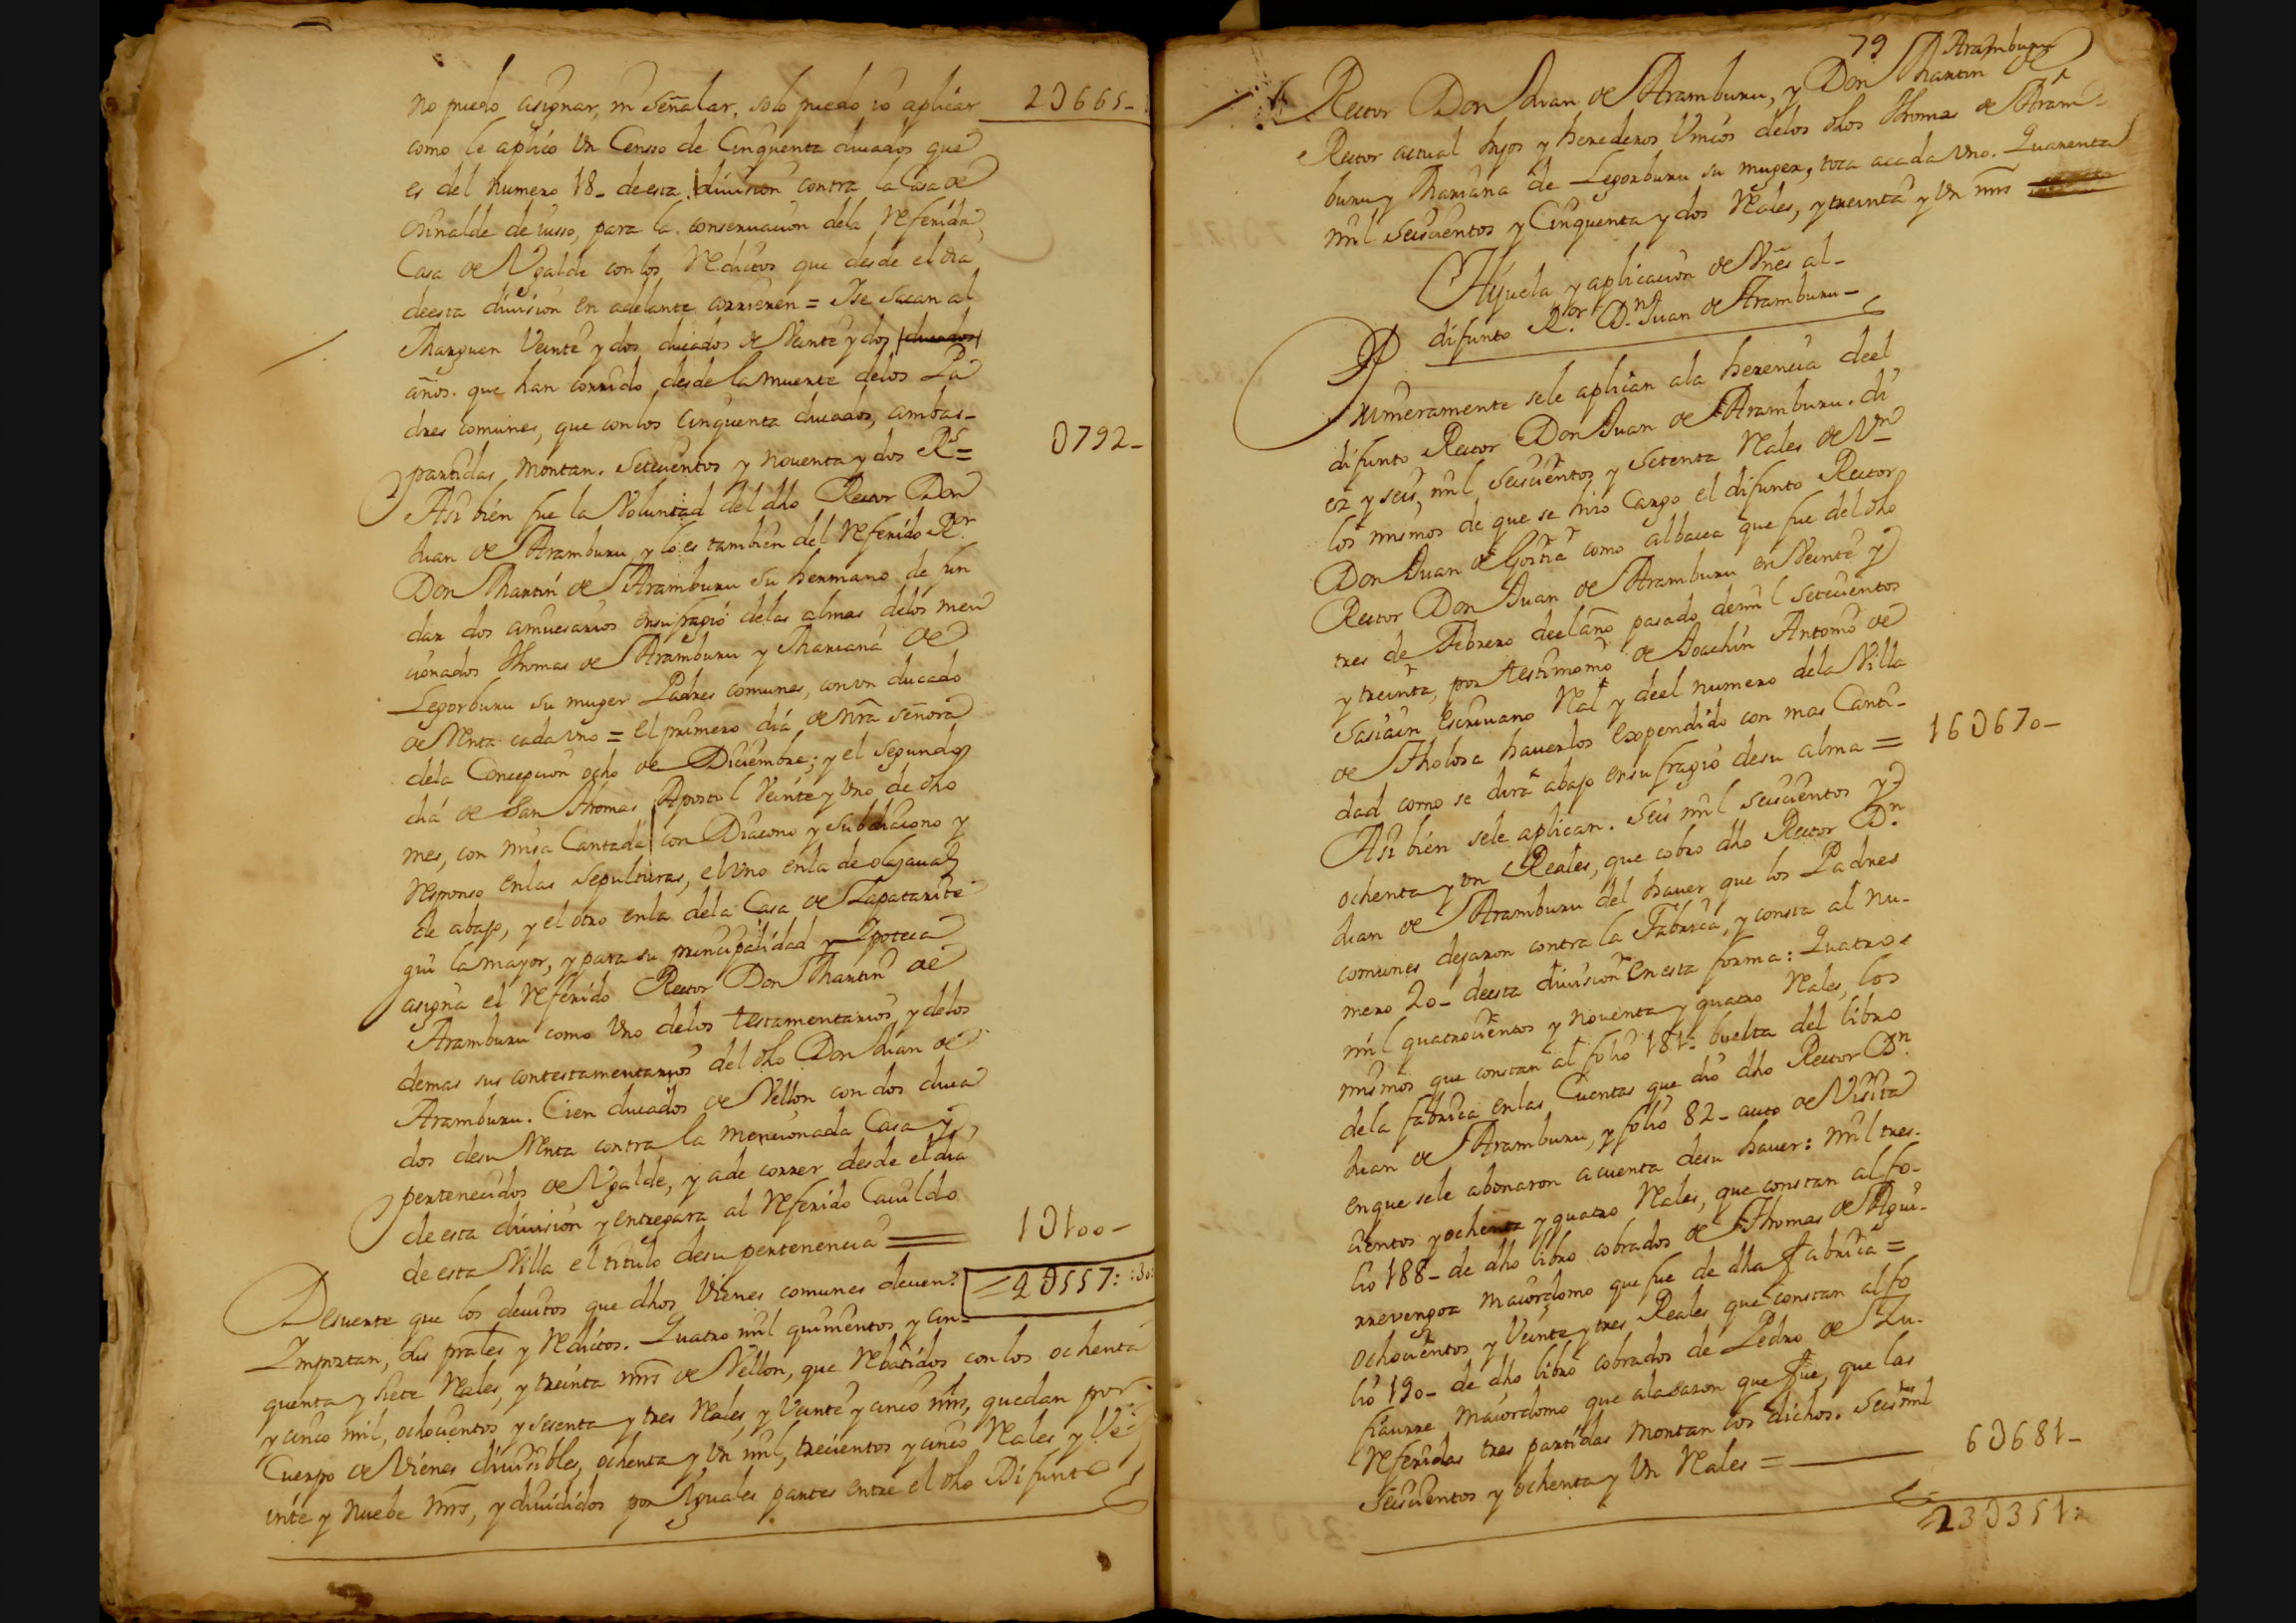 no puedo asignar, ni señalar, solo puedo io aplicar 2U665-
como le aplico Un Censso de Cinquenta ducados que
es del numero 18- deesta division contra la Casa de
de iusso, para la conseruacion dela Referida
Casa de Ugalde con los Reditos que desde el dia
deesta division en adelante corrieren = Ise sacan al
Marguen Veinte y dos ducados de Veinte y dos ducados
años que han corrido desde la muerte delos Pa
dres comunes, que con los Cinquenta ducados, ambas-
partidas, montan. Setecientos y nouenta y dos Rs= U792-
Asi bien fue la Voluntad del dho Rector Don
Juan de Aramburu, y lo es tambien del Referido Ror
Don Martin de Aramburu su hermano de fun
dar dos aniuesarios en sufragio delas almas delos men
cionados Thomas de Aramburu y Mariana de
Legorburu su muger Padres comunes, con vn ducado
de Renta cada vno = el primero dia de nra señora
dela Concepcion ocho de Diciembre; y el segundo
dia de San Thomas Apostol Veinte y Uno de dho
mes, con missa Cantada con Diacono y Subdiacono y
Responso enlas sepulturas, el Vno enla de olajaual
de abajo, y el otro enla dela Casa de Zapatarite
gui la mayor, y para su principalidad y Ipoteca
asigna el Referido Rector Don Martin de
Aramburu como Vno delos testamentarios, y delos
demas sus contestamentarios del dho Don Juan de
Aramburu. Cien ducados de Vellon con dos duca
dos desu Renta contra la mencionada Casa y
pertenecidos de Ugalde, y ade correr desde el dia
de esta division y entregara al Referido Cauildo
de esta Villa el titulo desu pertenencia = 1U100-
Desuerte que los deuitos que dhos Vienes comunes deuen 4U557::30:
Importan, sus prales y Reditos. Quatro mil quinientos y cin-
quenta y siete Reales, y treinta mrs de Vellon, que Rebatidos con los ochenta
y cinco mil, ochocientos y sesenta y tres Reales, y Veinte y cinco mrs, quedan por
Cuerpo de Vienes diuisibles, ochenta y Un mil, trecientos y cinco Reales y Ve-
inte y nuebe mrs, y diuididos por Iguales partes entre el dho Difunto
79
Rector Don Juan de Aramburu, y Don Martin de Aramburu
Rector actual hijos y herederos Vnicos delos dhos Thomas de Aram-
buru y Mariana de Legorburu su muger, toca acada vno. Quarenta
mil Seiscientos y Cinquenta y dos Reales, y treinta y Un mrs
Hijuela y aplicacion de Vnes al-
difunto Ror Dn Juan de Aramburu-
Primeramente sele aplican ala herencia deel
difunto Rector Don Juan de Aramburu. di
ez y seis mil Seiscientos y Setenta Reales de Vn
los mismos de que se hizo Cargo el difunto Rector
Don Juan de Gostia como albacea que fue del dho
Rector Don Juan de Aramburu en Veinte y
tres de Febrero deel año pasado de mil Setecientos
y treinta, por testimonio de Joachin Antonio de
Sasiain Escriuano Real y deel numero dela Villa
de Tholosa hauerlos expendido con mas Canti-
dad como se dira abajo en sufragio desu alma = 16U670-
Asi bien sele aplican. Seis mil Seiscientos y
ochenta y Un Reales, que cobro dho Rector Dn
Juan de Aramburu del hauer que los Padres
comunes dejaron contra la Fabrica, y consta al nu-
mero 20- deesta division en esta forma: Quatro
mil quatrocientos y nouenta y quatro Reales, los
mismos que constan al folio 181- buelta del libro
dela fabrica enlas Cuentas que dio dho Rector Dn
Juan de Aramburu, y folio 82- auto de Visita
enque sele abonaron acuenta desu hauer: mil tres-
cientos y ochenta y quatro Reales, que constan al fo-
lio 188- de dho libro cobrados de Thomas de Agui-
rrevengoa maiordomo que fue de dha Fabrica =
ochocientos y Veinte y tres Reales que constan al fo
lio 190- de dho libro cobrados de Pedro de Zu-
fiaurre maiordomo que alasazon que fue, que las
Referidas tres partidas montan los dichos. Seis mil
Seiscientos y ochenta y Un Reales = 6U681-
23U351: